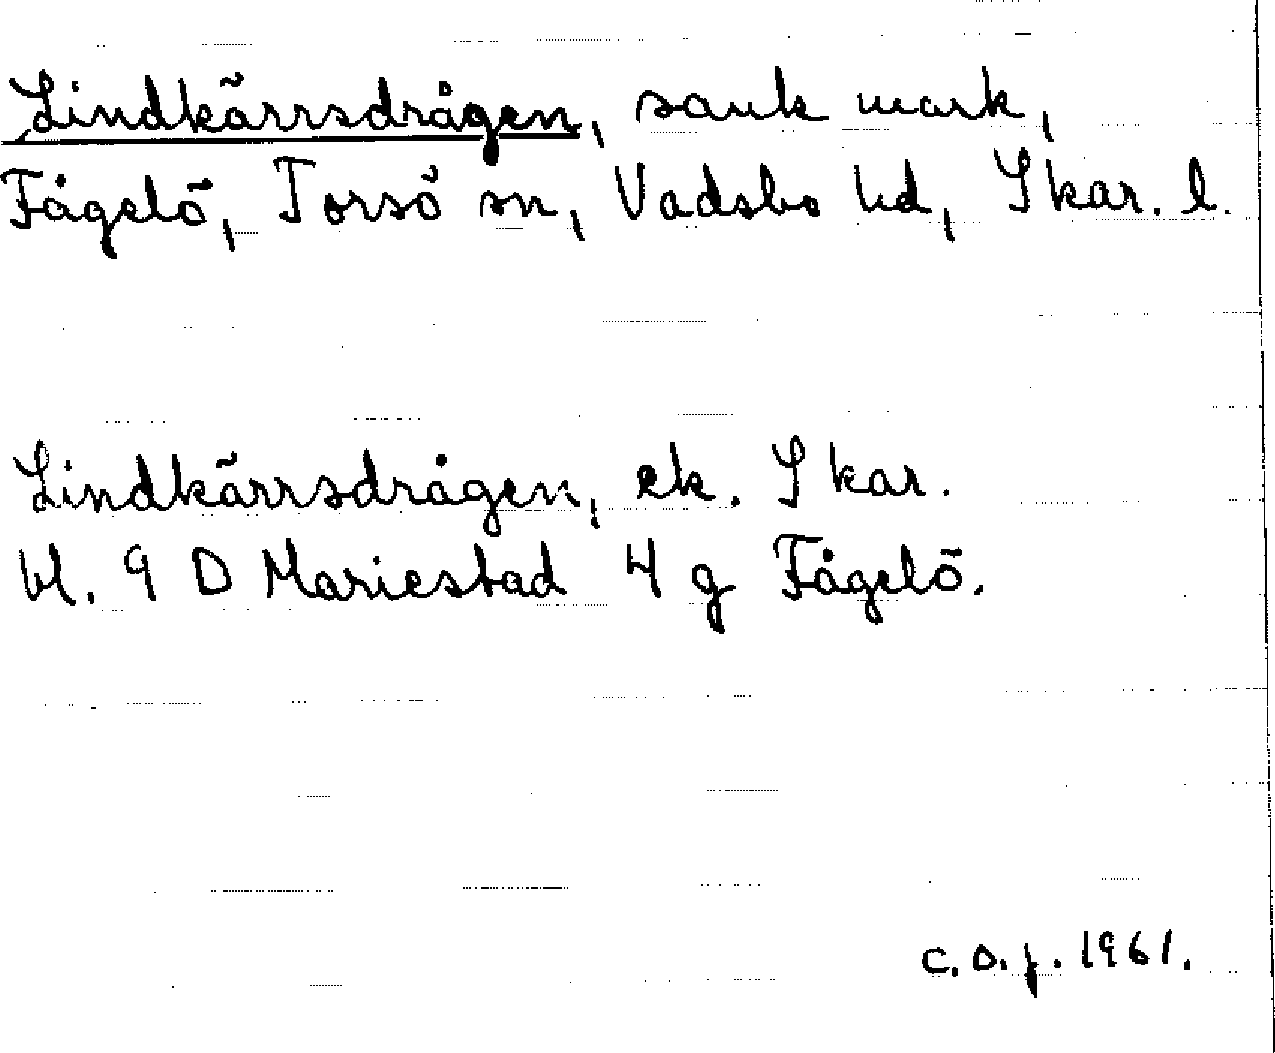 Lindkärrsdrågen, sank mark,
Fågelö, Torsö sn, Vadsbo hd, Skar. l.
Lindkärrsdrågen, ek. Skar.
bl. 9 D Mariestad 4 g Fågelö.
C. O. f. 1961.